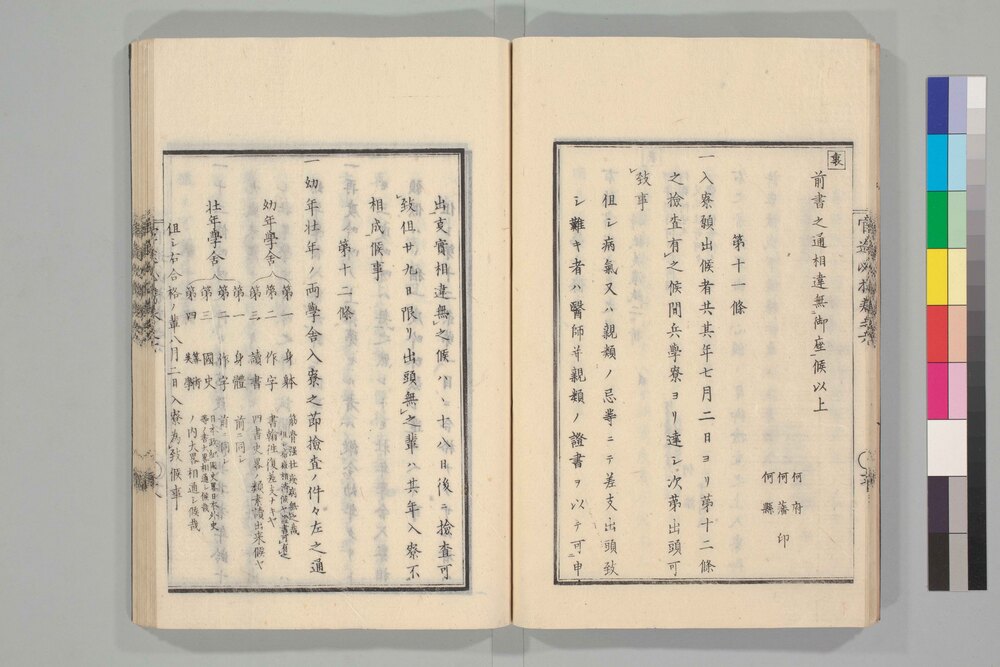 裏
前書之通相違無御座候以上
何府
何藩印
何縣
第十一條
一入寮願出候者共其年七月二日ヨリ第十二條
之撿査有之候間兵學寮ヨリ達シ次第出頭可
致事
但シ病氣又ハ親類ノ忌等ニテ差支出頭致
シ難キ者ハ醫師并親類ノ證書ヲ以テ可申
出支實相違無之候ハヽ十八日後ニ撿査可
致但廿九日限リ出頭無之輩ハ其年入寮不
相成候事
第十二條
一幼年壮年ノ両學舎入寮之節撿査ノ件々左之通
幼年學舎
第一 身躰
第二 作字 書翰往復差支ナキヤ
第三 讀書 四書史畧類素讀出来候ヤ
壮年學舎
第一 身體 前ニ同シ
第二 作字 前ニ同シ
第三 國史
第四 算術 ノ内大畧相通シ候哉
但シ右合格ノ輩八月二日入寮為致候事